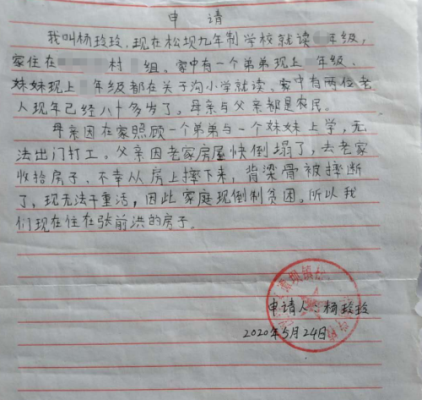 申 请
我叫杨玫玫，现在松坝九年制学校就读 年级，
家住在 村 组。家中有一个弟弟现上 年级、
妹妹现上 年级都在关于沟小学就读。家中有两位老
人现年已经八十多岁了，母亲与父亲都是农民。
母亲因在家照顾一个弟弟与一个妹妹上学，无
法出门打工，父亲因老家房屋快倒塌了，去老家
收拾房子、不幸从房上摔下来，背梁骨被摔断
了，现无法干重活，因此家庭现倒制贫困。所以我
们现在住在张前洪的房子。
申请人：杨玫玫
2020年5月24日